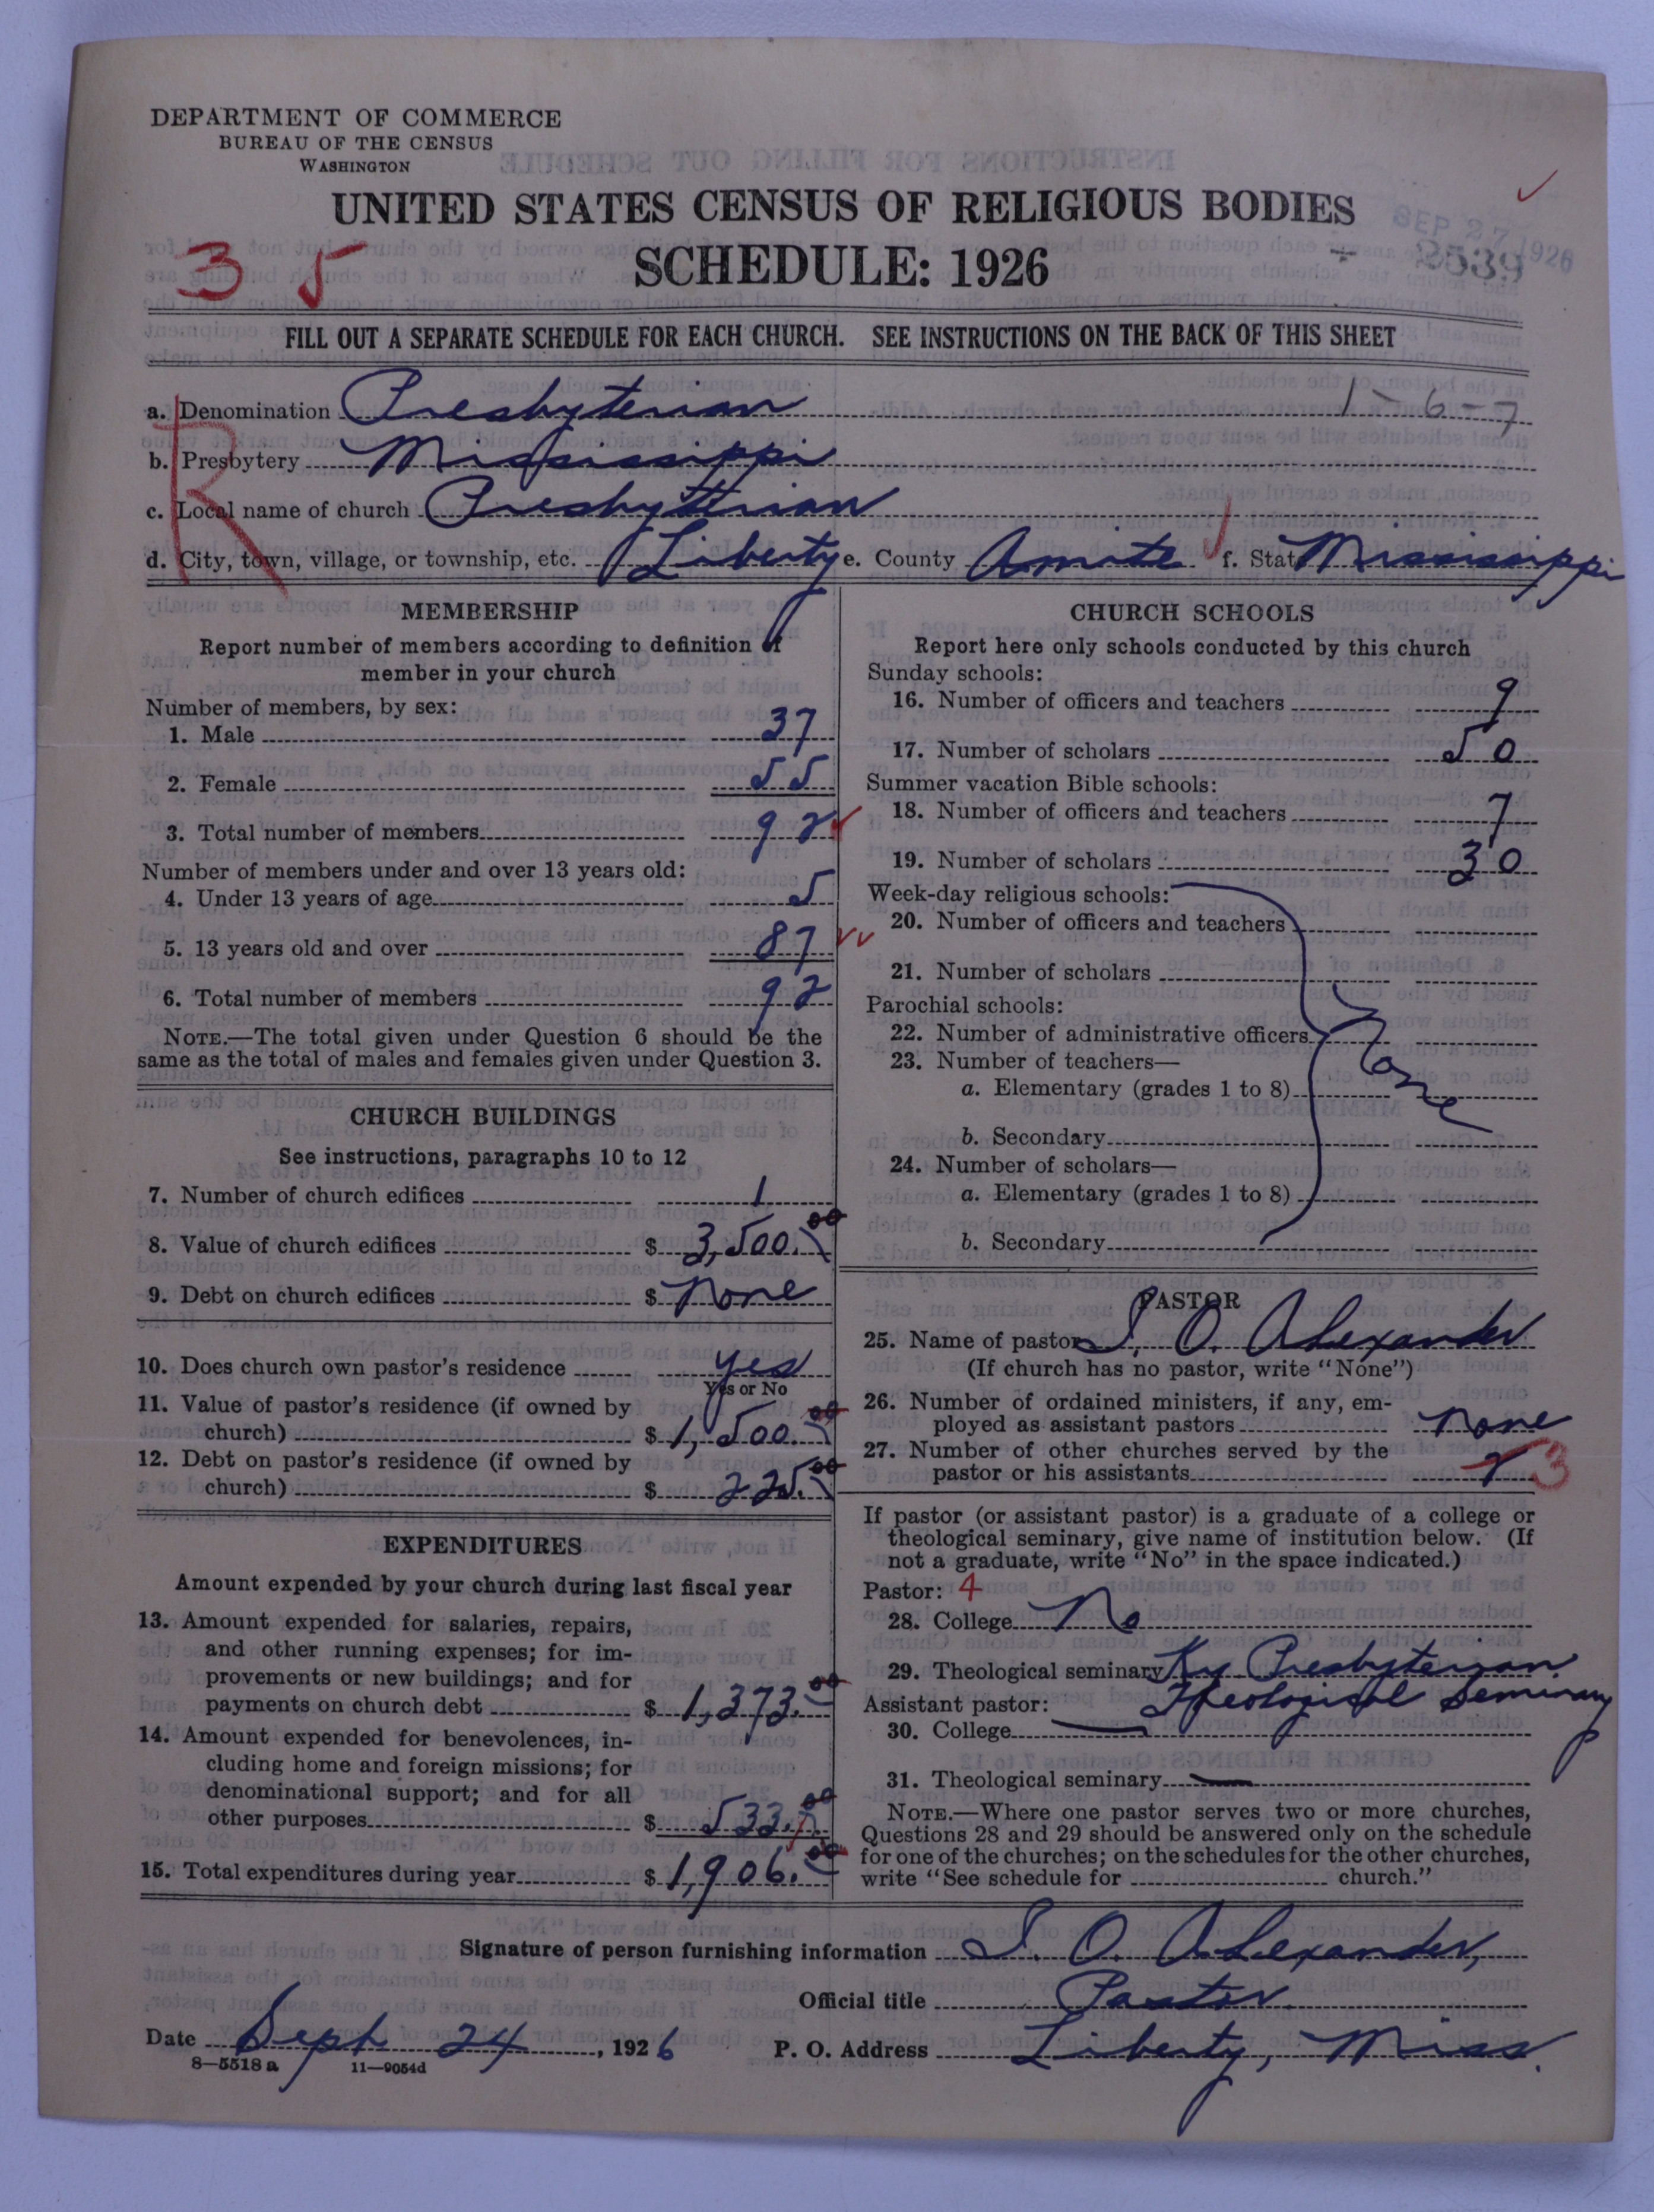 DEPARTMENT OF COMMERCE
BUREAU OF THE CENSUS
WASHINGTON
UNITED STATES CENSUS OF RELIGIOUS BODIES
SCHEDULE: 1926
SEP 27 1926
2539
3 5
FILL OUT A SEPARATE SCHEDULE FOR EACH CHURCH. SEE INSTRUCTIONS ON THE BACK OF THIS SHEET
R
a. Denomination Presbyterian 1-6-7
b. Presbytery Mississippi
c. Local name of church Presbyterian
d. City, town, village, or township, etc. Liberty e. County Amite f. State Mississippi
MEMBERSHIP
Report number of members according to definition of
member in your church
Number of members, by sex:
1. Male 37
2. Female 55
3. Total number of members 92
Number of members under and over 13 years old:
4. Under 13 years of age 5
5. 13 years old and over 87
6. Total number of members 92
NOTE.—The total given under Question 6 should be the
same as the total of males and females given under Question 3.
CHURCH BUILDINGS
See instructions, paragraphs 10 to 12
7. Number of church edifices 1
8. Value of church edifices $ 3,500.00
9. Debt on church edifices $ None
10. Does church own pastor's residence yes
Yes or No
11. Value of pastor's residence (if owned by
church) $ 1,500.00
12. Debt on pastor's residence (if owned by
church) $ 225.00
EXPENDITURES
Amount expended by your church during last fiscal year
13. Amount expended for salaries, repairs,
and other running expenses; for im-
provements or new buildings; and for
payments on church debt $ 1,373.00
14. Amount expended for benevolences, in-
cluding home and foreign missions; for
denominational support; and for all
other purposes $ 533.00
15. Total expenditures during year $ 1,906.00
CHURCH SCHOOLS
Report here only schools conducted by this church
Sunday schools:
16. Number of officers and teachers 9
17. Number of scholars 50
Summer vacation Bible schools:
18. Number of officers and teachers 7
19. Number of scholars 30
Week-day religious schools:
20. Number of officers and teachers
21. Number of scholars
Parochial schools:
22. Number of administrative officers
None
23. Number of teachers—
a. Elementary (grades 1 to 8)
b. Secondary
24. Number of scholars—
a. Elementary (grades 1 to 8)
b. Secondary
PASTOR
25. Name of pastor S. O. Alexander
(If church has no pastor, write "None")
26. Number of ordained ministers, if any, em-
ployed as assistant pastors None
27. Number of other churches served by the
pastor or his assistants 3
If pastor (or assistant pastor) is a graduate of a college or
theological seminary, give name of institution below. (If
not a graduate, write "No" in the space indicated.)
Pastor: 4
28. College No
29. Theological seminary Ky Presbyterian
Theological Seminary
Assistant pastor:
30. College —
31. Theological seminary —
NOTE.—Where one pastor serves two or more churches,
Questions 28 and 29 should be answered only on the schedule
for one of the churches; on the schedules for the other churches,
write "See schedule for church."
Signature of person furnishing information S. O. Alexander,
Official title Pastor.
Date Sept 24, 1926 P. O. Address Liberty, Miss.
8—5518 a 11—9054d